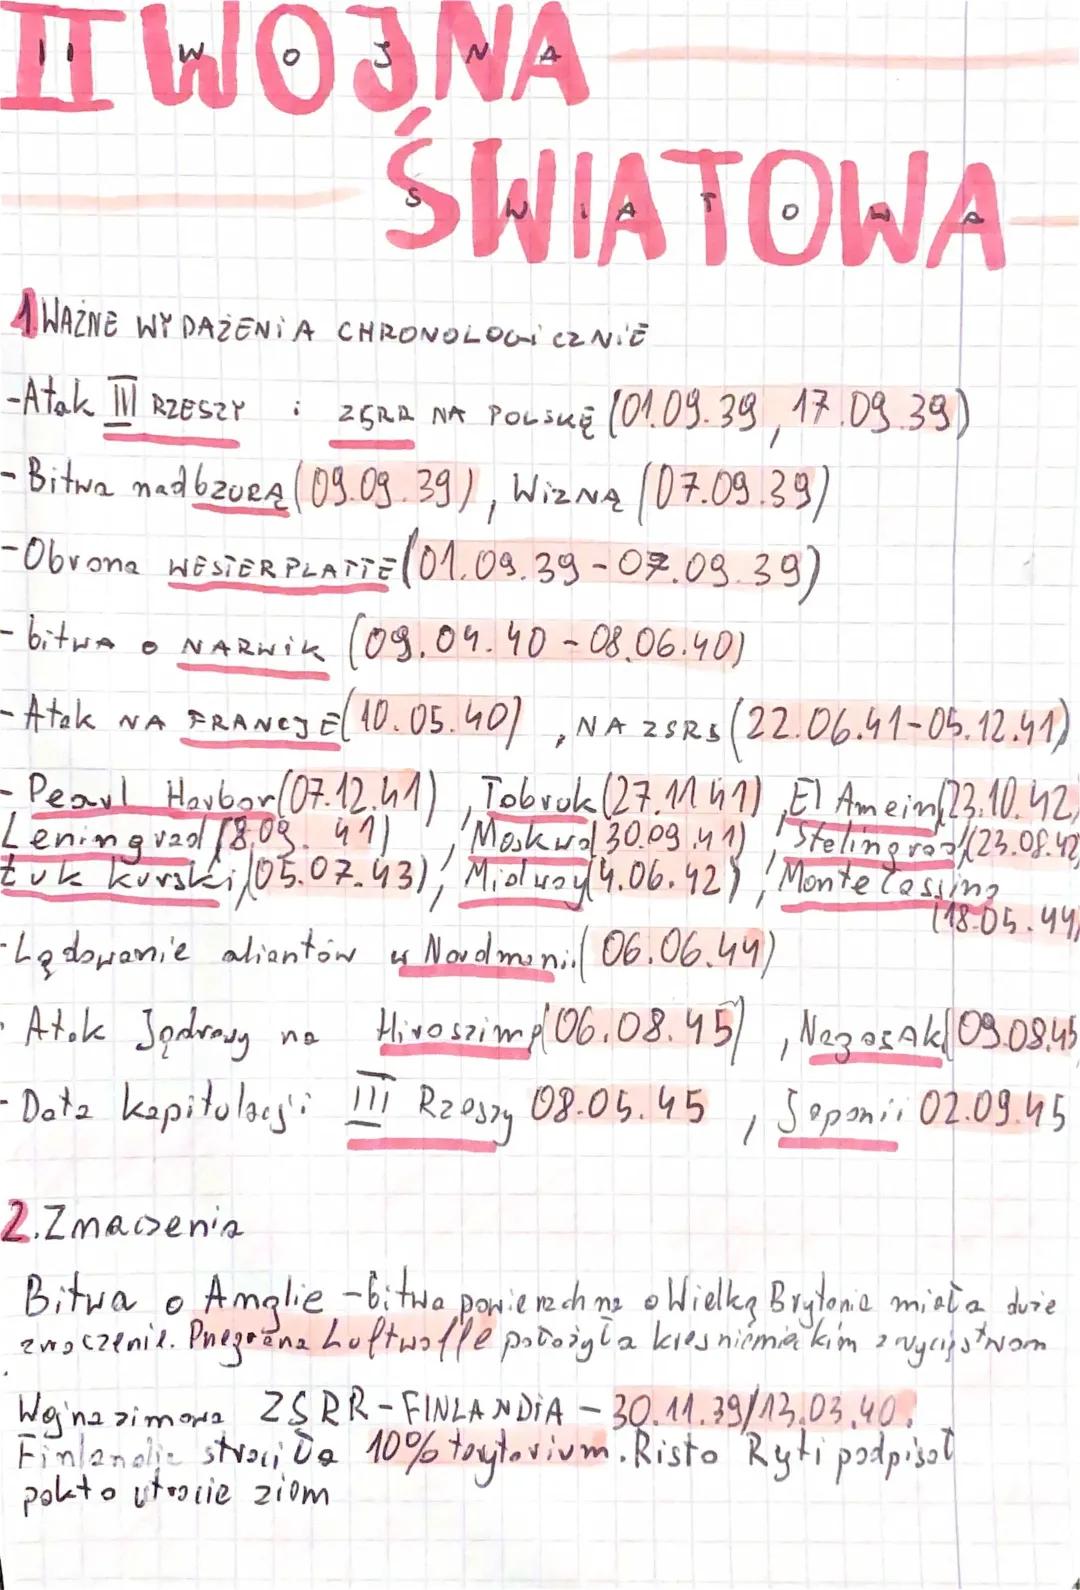 II WOJNA
ŚWIATOWA
1. WAŻNE WYDAŻENIA CHRONOLOGICZNIE
-Atak III RZESZY i ZSRR NA POLSKĘ (01.09.39, 17.09.39)
- Bitwa nad bZURĄ (09.09.39), WIZNĄ (07.09.39)
-Obrona WESTERPLATTE (01.09.39-07.09.39)
- bitwa o NARWIK (09.04.40-08.06.40)
- Atak NA FRANCJE (10.05.40), NA ZSRS (22.06.41-05.12.41)
- Pearl Harbor (07.12.41), Tobruk (27.11.41), El Amein (23.10.42,
Leningrad (8.09.41), Moskwa (30.09.41), Stelingrad (23.08.42)
Łuk kurski (05.07.43), Midway (4.06.42), Monte Cassino
(18.05.44)
-Lądowanie aliantów w Nordmanii (06.06.44)
- Atak Jądrowy na Hiroszimę (06.08.45), Nagasaki (09.08.45
- Data kapitulacji III Rzeszy 08.05.45, Japonii 02.09.45
2. Znaczenia
Bitwa o Anglie - bitwa powierzchna o Wielką Brytanie miała duże
znaczenie. Przegrana Luftwaffe położyła kres niemieckim zwycięstwom
Wojna zimowa ZSRR-FINLANDIA - 30.11.39/13.03.40.
Finlandia straciła 10% terytorium. Risto Ryti podpisał
pakt o utracie ziem